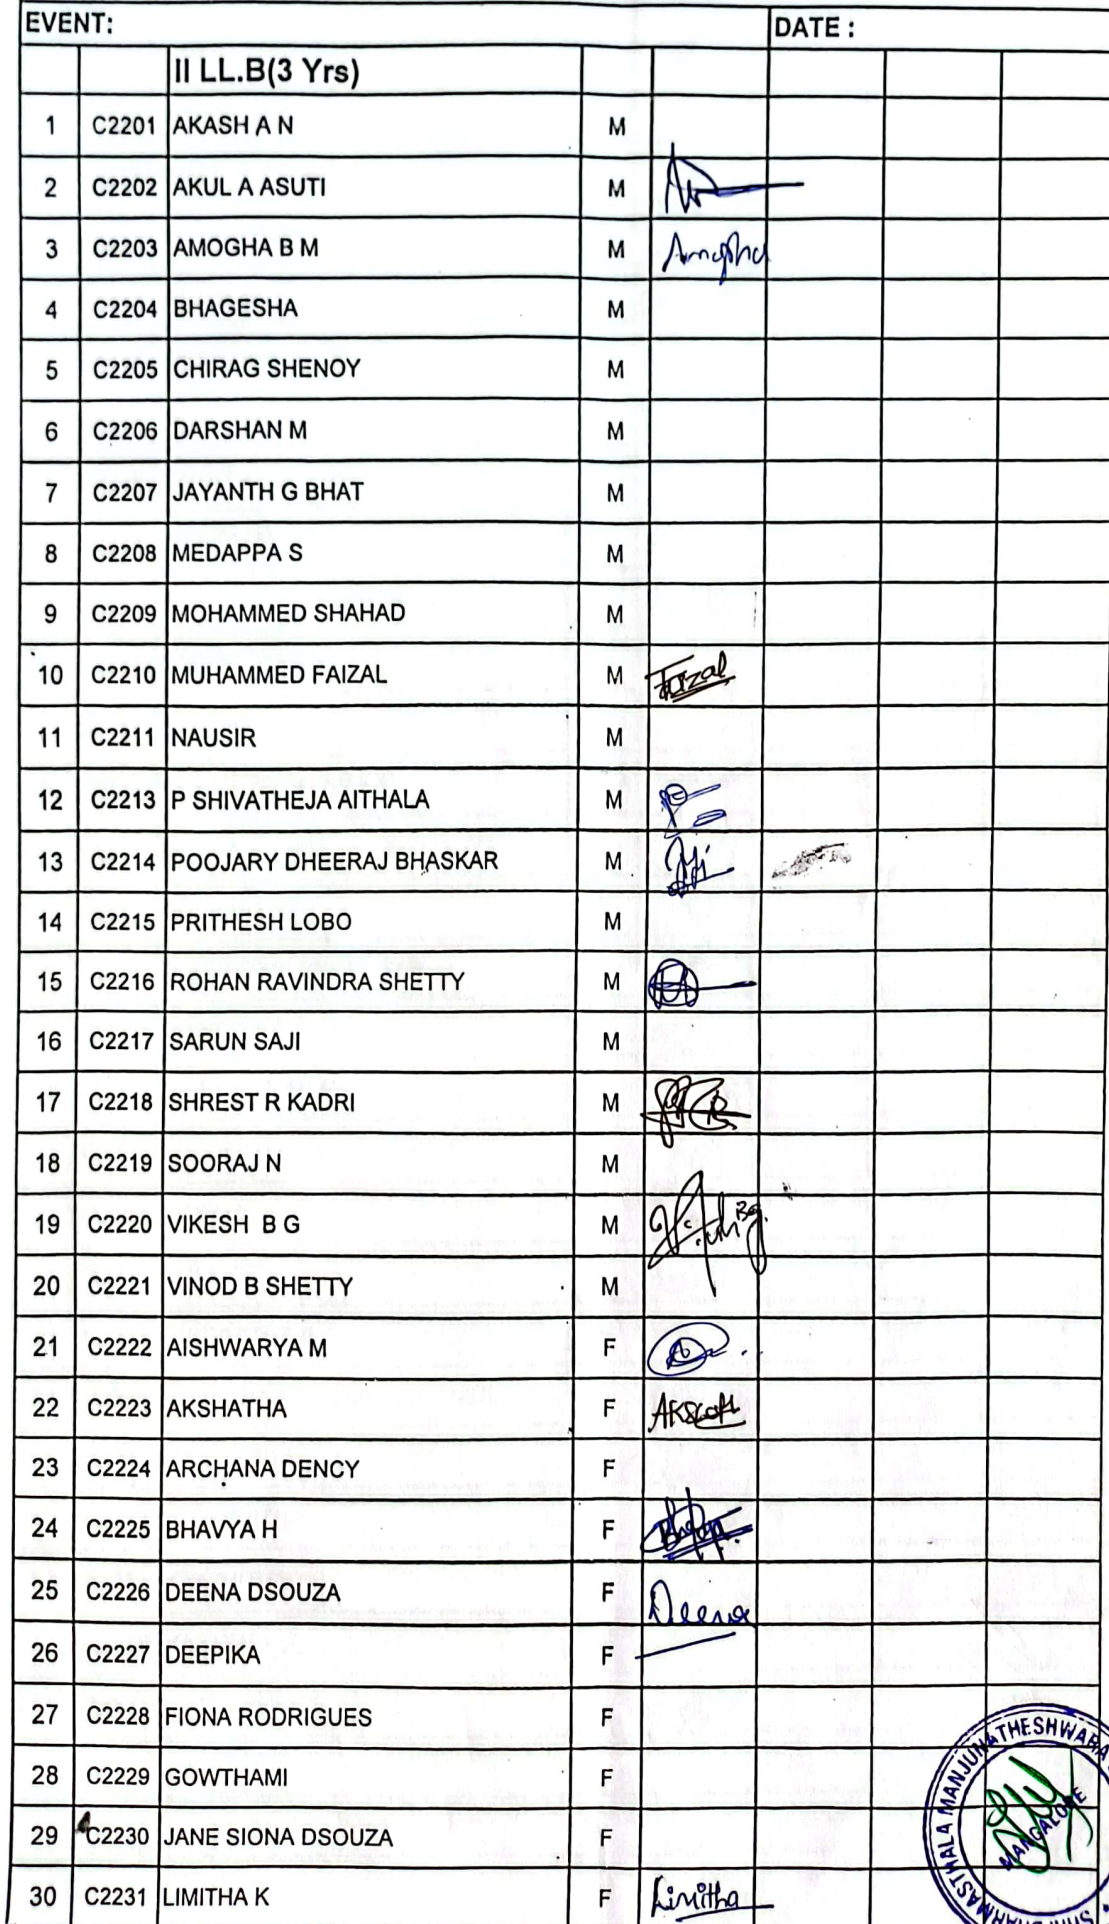 EVENT: DATE :
II LL.B(3 Yrs)
1 C2201 AKASH A N M
2 C2202 AKUL A ASUTI M
3 C2203 AMOGHA B M M Amogha
4 C2204 BHAGESHA M
5 C2205 CHIRAG SHENOY M
6 C2206 DARSHAN M M
7 C2207 JAYANTH G BHAT M
8 C2208 MEDAPPA S M
9 C2209 MOHAMMED SHAHAD M
10 C2210 MUHAMMED FAIZAL M Faizal
11 C2211 NAUSIR M
12 C2213 P SHIVATHEJA AITHALA M
13 C2214 POOJARY DHEERAJ BHASKAR M
14 C2215 PRITHESH LOBO M
15 C2216 ROHAN RAVINDRA SHETTY M
16 C2217 SARUN SAJI M
17 C2218 SHREST R KADRI M
18 C2219 SOORAJ N M
19 C2220 VIKESH B G M
20 C2221 VINOD B SHETTY M
21 C2222 AISHWARYA M F
22 C2223 AKSHATHA F
23 C2224 ARCHANA DENCY F
24 C2225 BHAVYA H F
25 C2226 DEENA DSOUZA F Deena
26 C2227 DEEPIKA F
27 C2228 FIONA RODRIGUES F
28 C2229 GOWTHAMI F
29 C2230 JANE SIONA DSOUZA F
30 C2231 LIMITHA K F Limitha
MANJUNATHESHWARA
MANGALORE